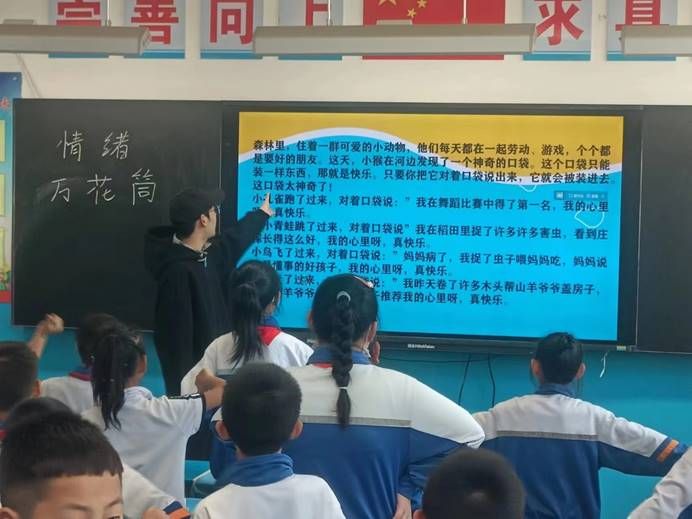 善
向
上
求
真
情绪
万花筒
森林里，住着一群可爱的小动物，他们每天都在一起劳动、游戏，个个都
是要好的朋友。这天，小猴在河边发现了一个神奇的口袋。这个口袋只能
装一样东西，那就是快乐。只要你把它对着口袋说出来，它就会被装进去。
这口袋太神奇了！
小孔雀跑了过来，对着口袋说："我在舞蹈比赛中得了第一名，我的心里
真快乐。
小青蛙跳了过来，对着口袋说："我在稻田里捉了许多许多害虫，看到庄
长得这么好，我的心里呀，真快乐。
小鸟飞了过来，对着口袋说："妈妈病了，我捉了虫子喂妈妈吃，妈妈说
懂事的好孩子，我的心里呀，真快乐。
了过来，对着口袋说："我昨天卷了许多木头帮山羊爷爷盖房子，
羊爷爷 推荐我的心里呀，真快乐。